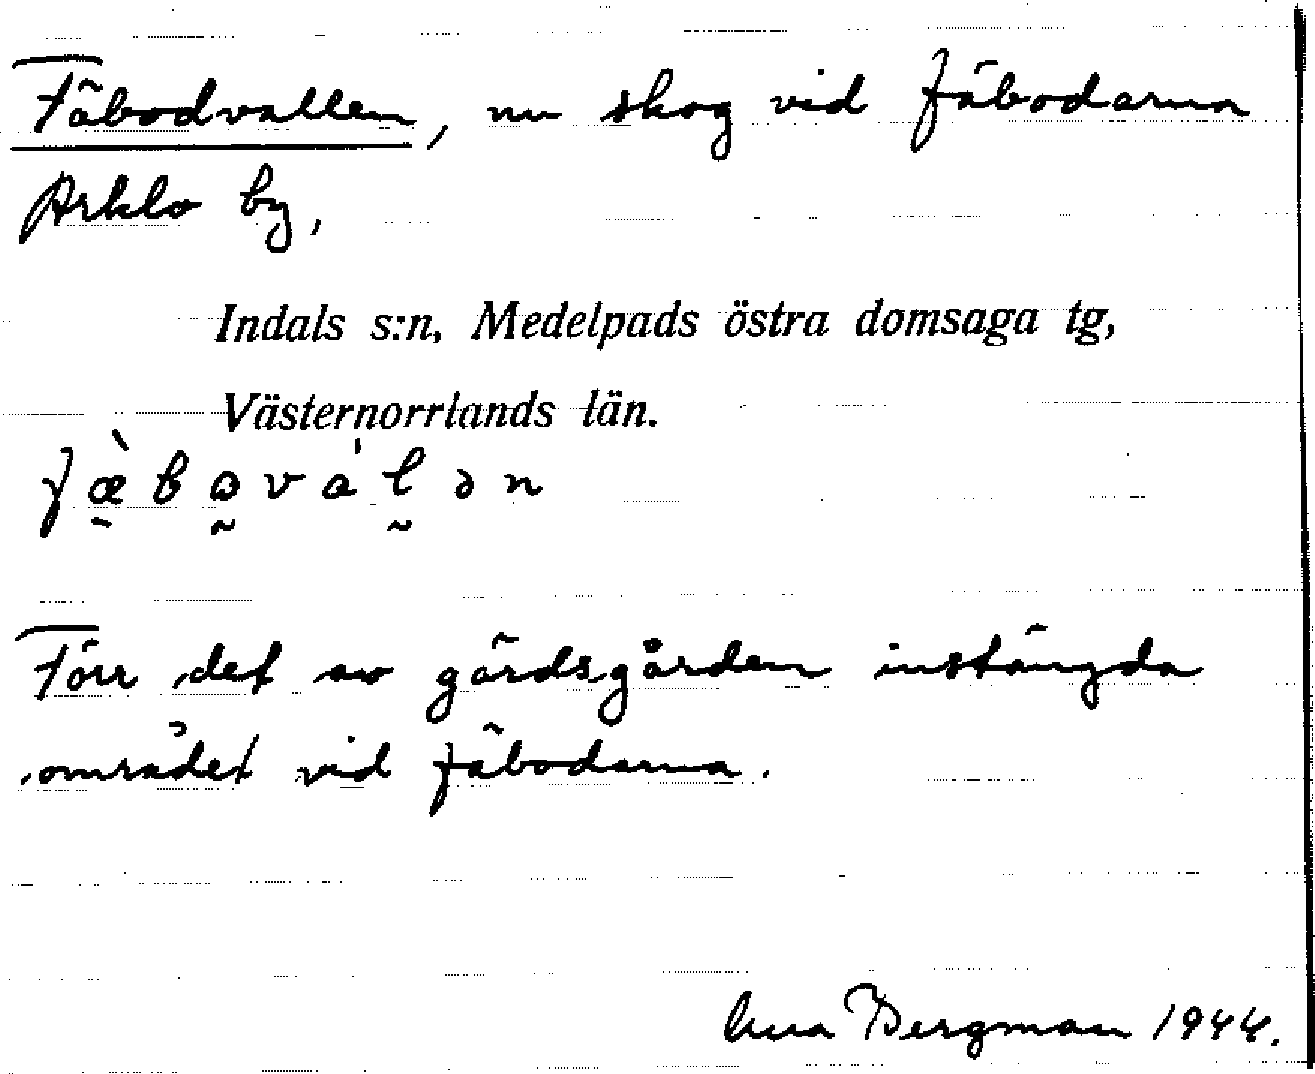 Fäbodvallen, nu skog vid fäbodarna
Arklo by,
Indals s:n, Medelpads östra domsaga tg,
Västernorrlands län.
Förr det av gärdsgården instängda
området vid fäbodarna.
Bergman 1944.